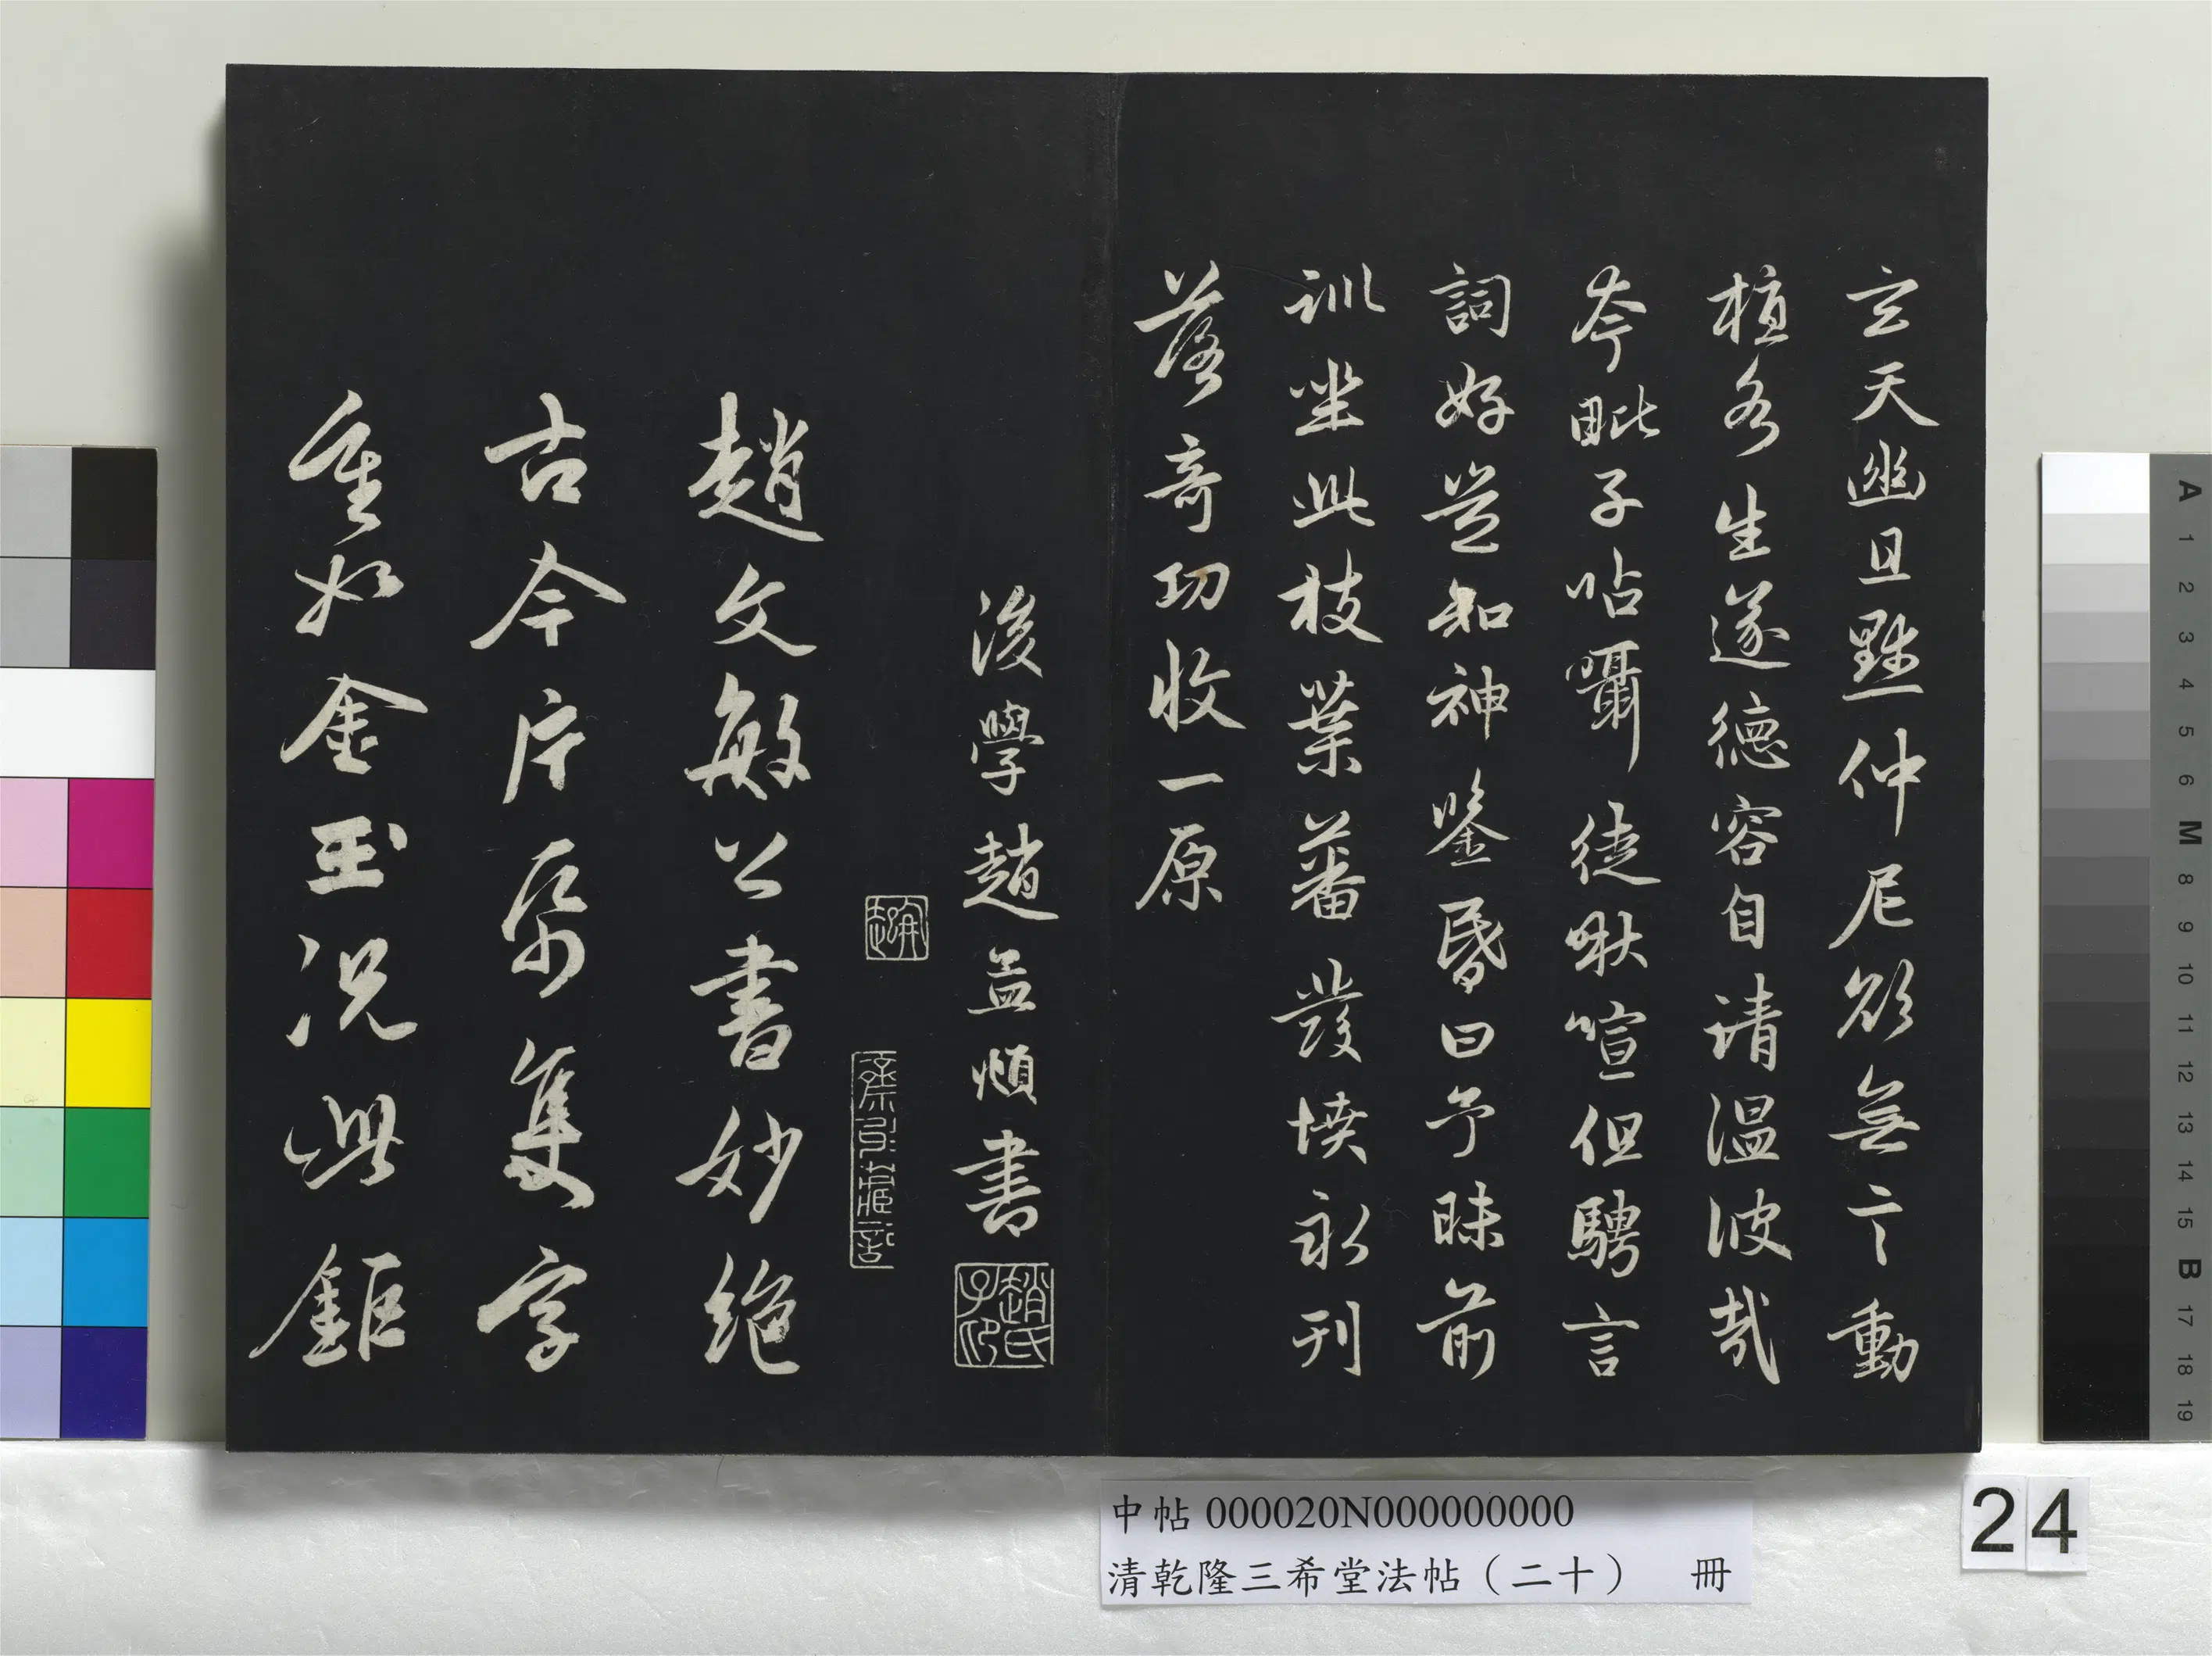 玄天幽且默仲尼欲無言動
植各生遂德容自清温彼哉
夸毗子呫囁徒啾喧但騁言
詞好豈知神鑒昏曰予昧前
訓坐此枝葉蕃發憤永刊
落奇功收一原
後學趙孟頫書
趙氏子昂
趙文敏公書妙絶
古今片紙隻字
重如金玉況此鉅
中帖 000020N000000000
清乾隆三希堂法帖（二十） 冊
24
A 1 2 3 4 5 6 M 8 9 10 11 12 13 14 15 B 17 18 19